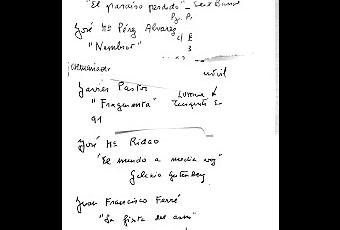 "El paraíso perdido" -
Pg. P.
José Mª Pérez Alvarez
"Nembrot"
c/ E
3
móvil
Javier Pastor
"Fragmenta"
91
José Mª Ridao
"El mundo a media voz"
Galaxia Gutenberg
Juan Francisco Ferré
"La fiesta del asno"